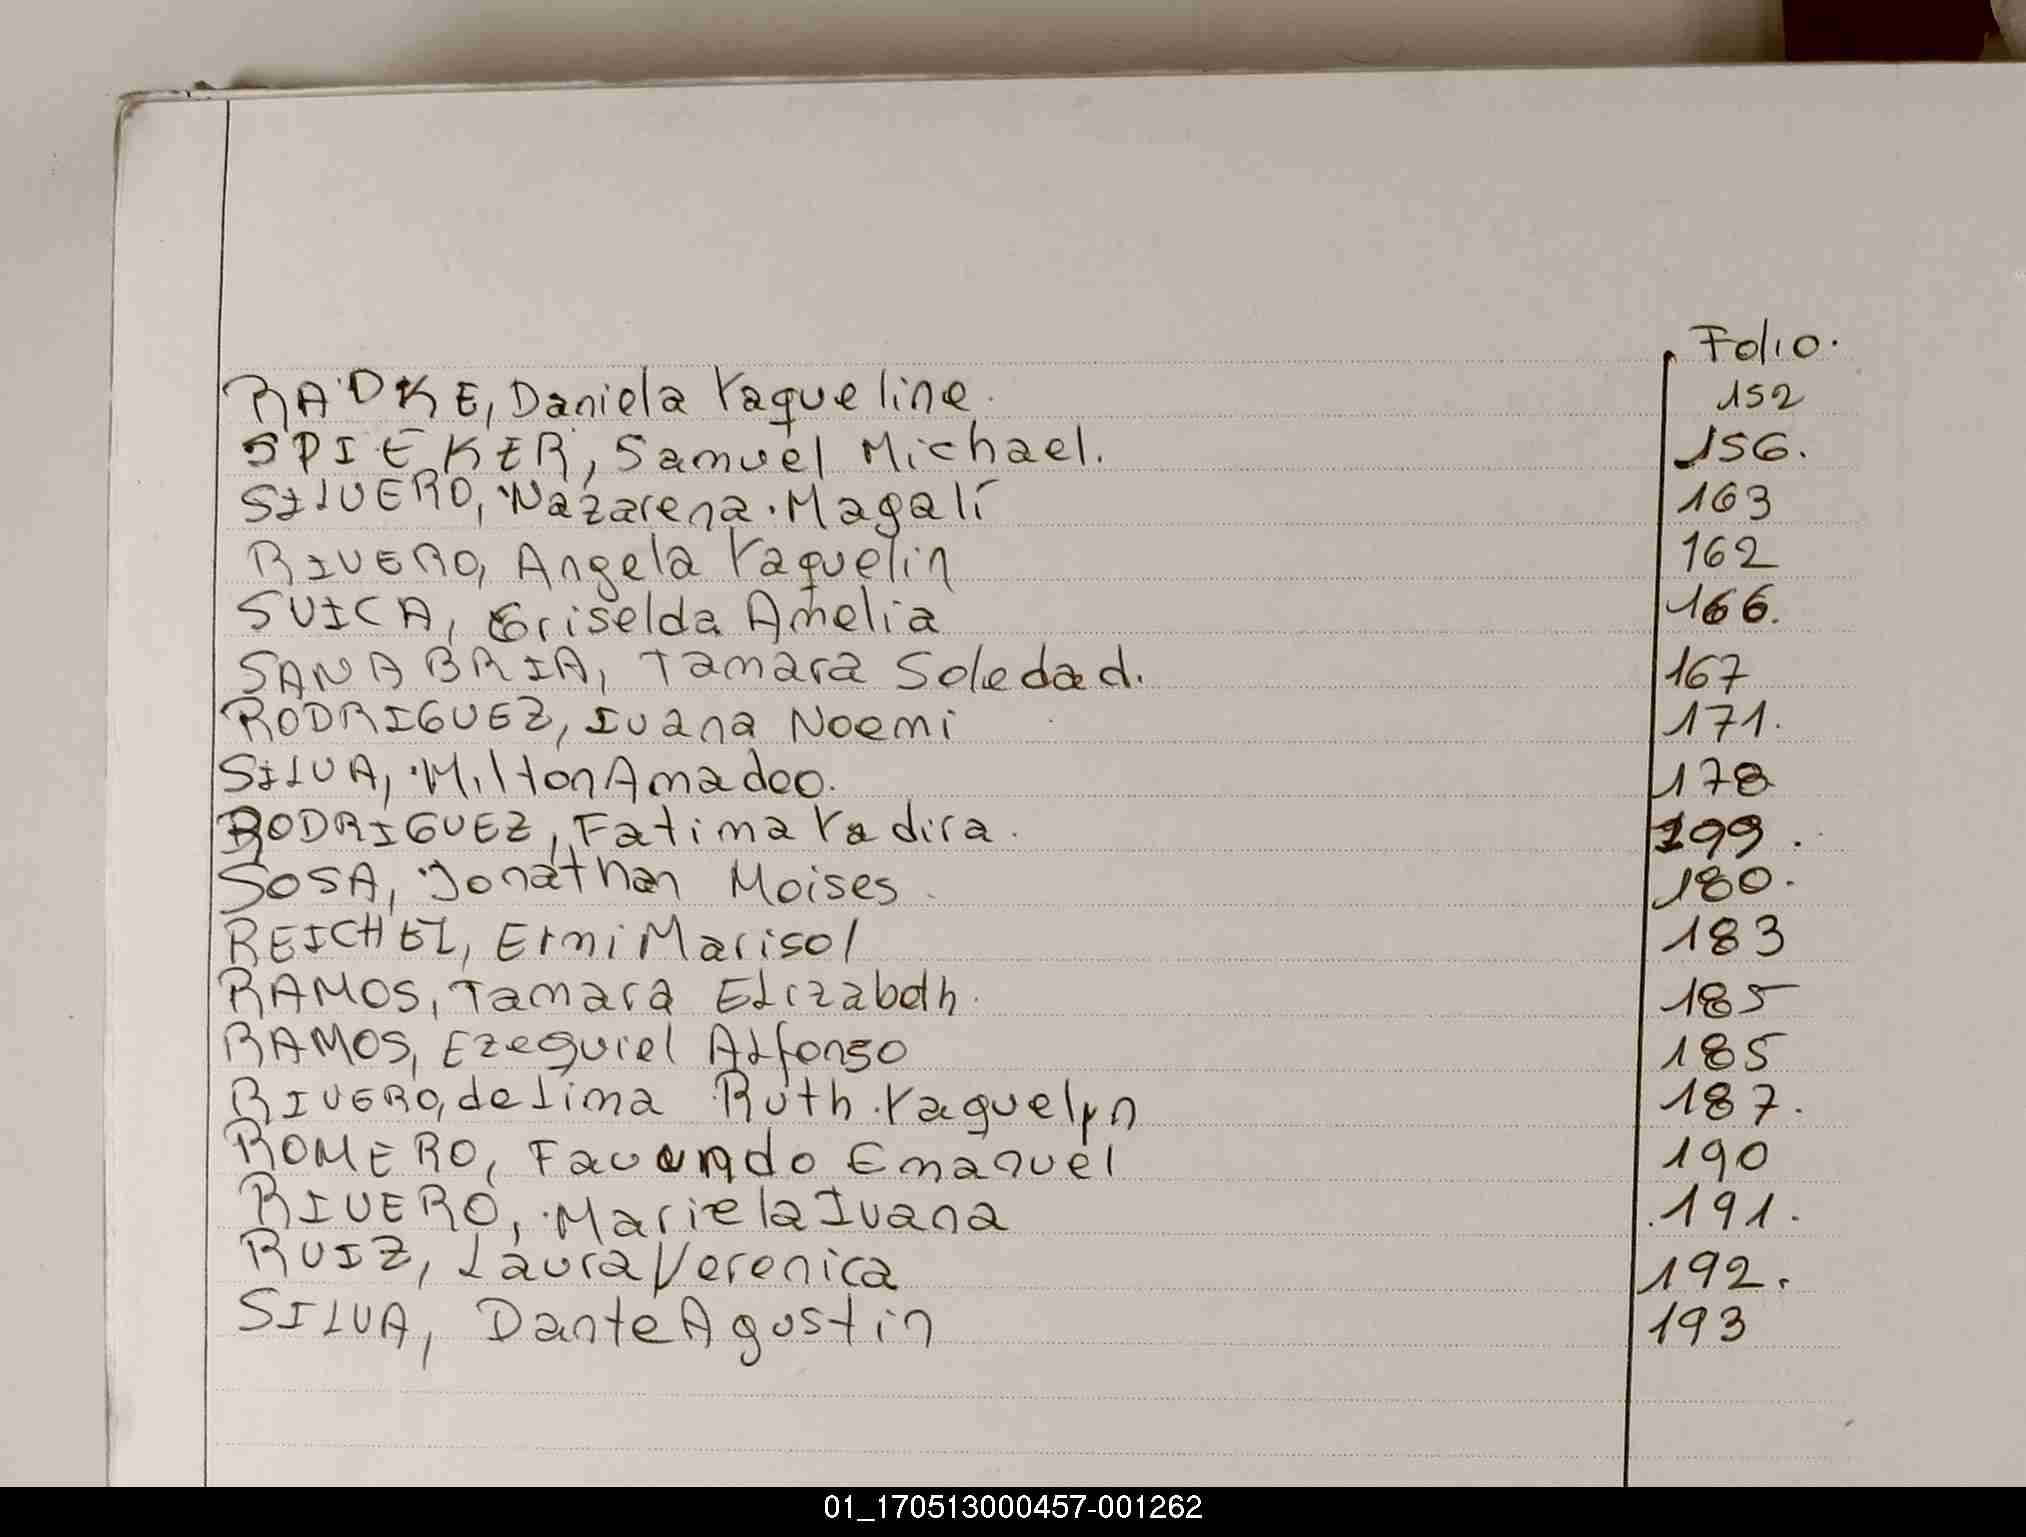 Folio.
RADKE, Daniela Yaqueline. 152
SPIEKER, Samuel Michael. 156.
SILVERO, Nazarena Magalí 163
RIVERO, Angela Yaquelin 162
SUICA, Griselda Amelia 166.
SANABRIA, Tamara Soledad. 167
RODRIGUEZ, Ivana Noemi 171.
SILVA, Milton Amadeo. 178
RODRIGUEZ, Fatima Yadira. 199.
SOSA, Jonathan Moises. 180.
REICHEL, Erni Marisol 183
RAMOS, Tamara Elizabeth. 185
RAMOS, Ezequiel Alfonso 185
RIVERO, de Lima Ruth Yaquelyn 187.
ROMERO, Facundo Emanuel 190
RIVERO, Mariela Ivana 191.
RUIZ, Laura Verenica 192.
SILVA, Dante Agustin 193
01_170513000457-001262